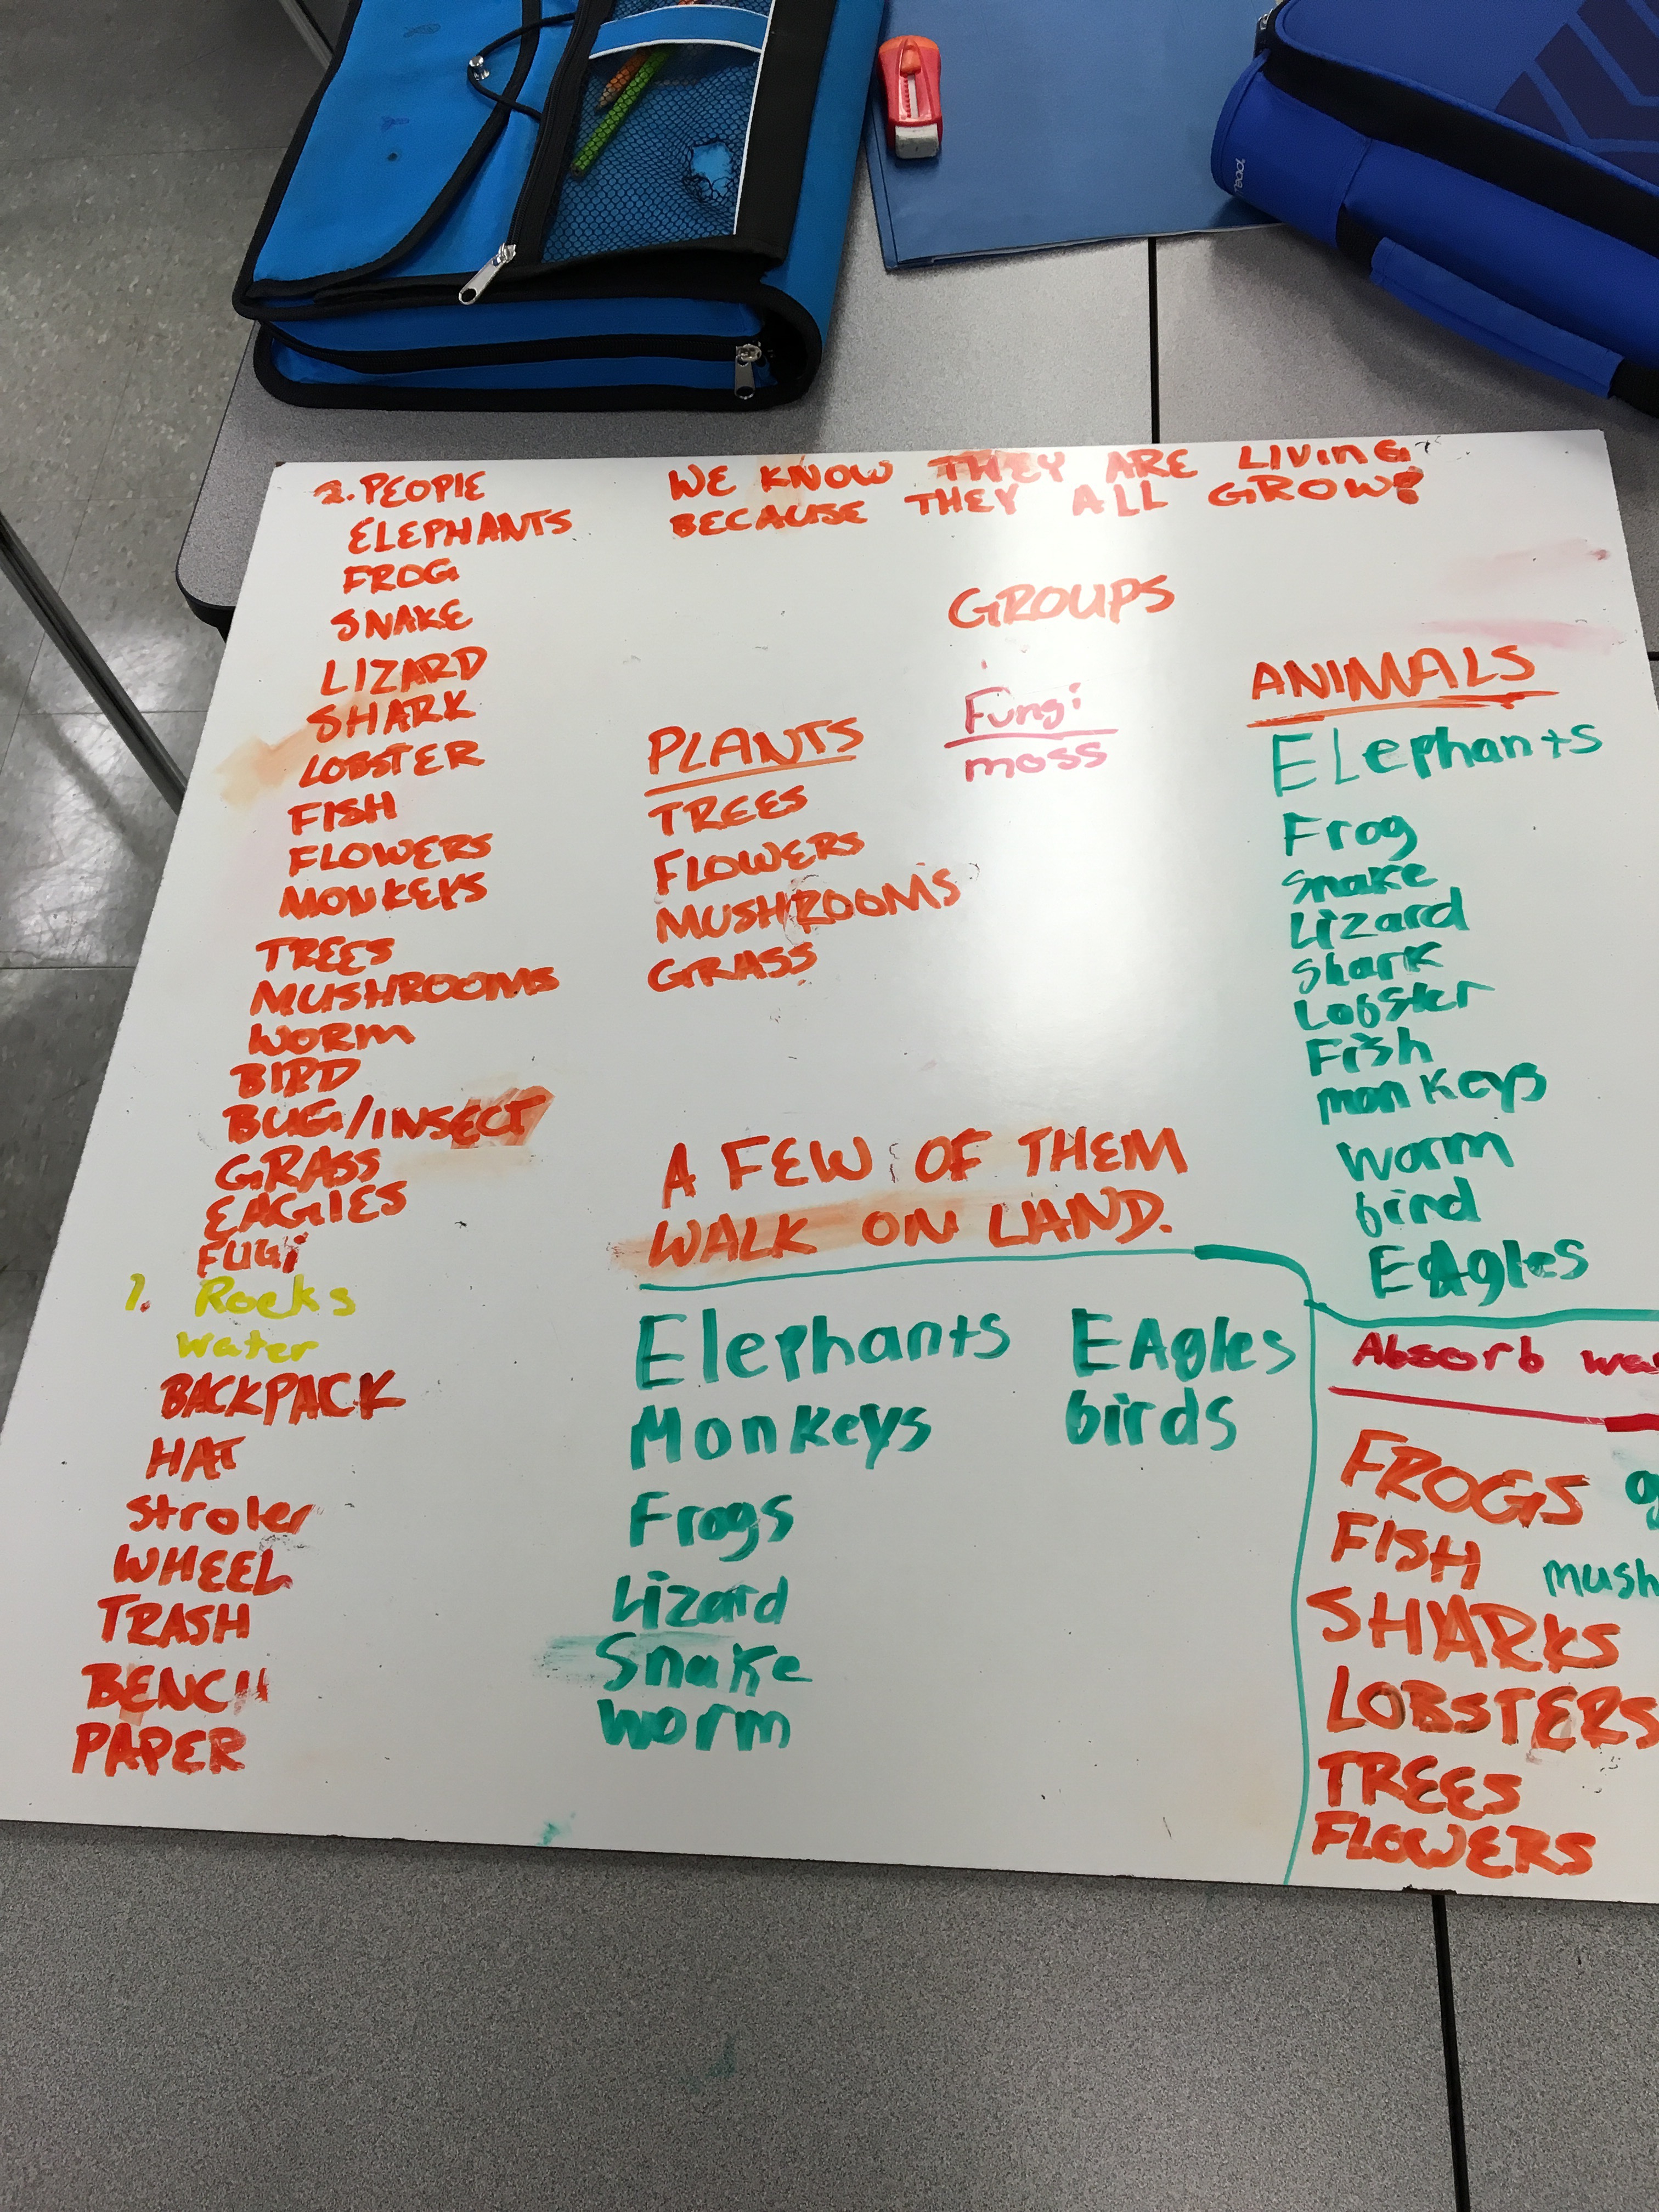 2. PEOPLE
ELEPHANTS
FROG
SNAKE
LIZARD
SHARK
LOBSTER
FISH
FLOWERS
MONKEYS
TREES
MUSHROOMS
WORM
BIRD
BUG/INSECT
GRASS
EAGLES
FUGi
1. Rocks
water
BACKPACK
HAT
stroler
WHEEL
TRASH
BENCH
PAPER
WE KNOW THEY ARE LIVING
BECAUSE THEY ALL GROW!
GROUPS
PLANTS
TREES
FLOWERS
MUSHROOMS
GRASS
Fungi
moss
ANIMALS
Elephants
Frog
snake
Lizard
shark
Lobster
Fish
monkeys
worm
bird
EAgles
A FEW OF THEM
WALK ON LAND.
Elephants
Monkeys
Frogs
Lizard
Snake
worm
EAgles
birds
Absorb
FROGS
FISH mush
SHARKS
LOBSTERS
TREES
FLOWERS